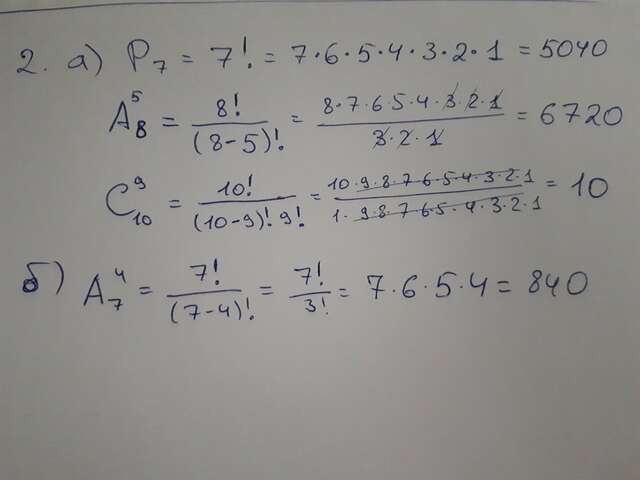 2. а) P₇ = 7! = 7·6·5·4·3·2·1 = 5040
A₈⁵ = 8!/(8-5)! = 8·7·6·5·4·3·2·1/3·2·1 = 6720
C₁₀⁹ = 10!/(10-9)! 9! = 10·9·8·7·6·5·4·3·2·1/1·9·8·7·6·5·4·3·2·1 = 10
б) A₇⁴ = 7!/(7-4)! = 7!/3! = 7·6·5·4 = 840